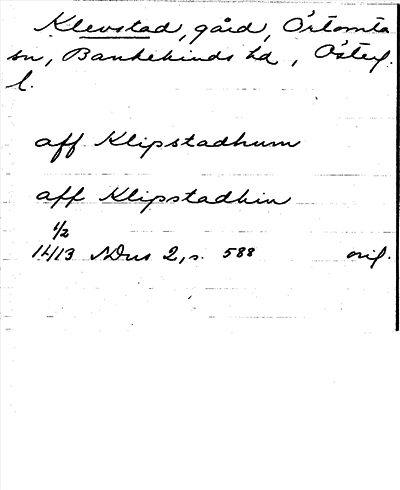 Klevstad, gård, Örtomta
sn, Bankekinds hd, Österg.
l.
aff Klipstadhum
aff Klipstadhin
1/2
1413 NDus 2, s. 588 orig.